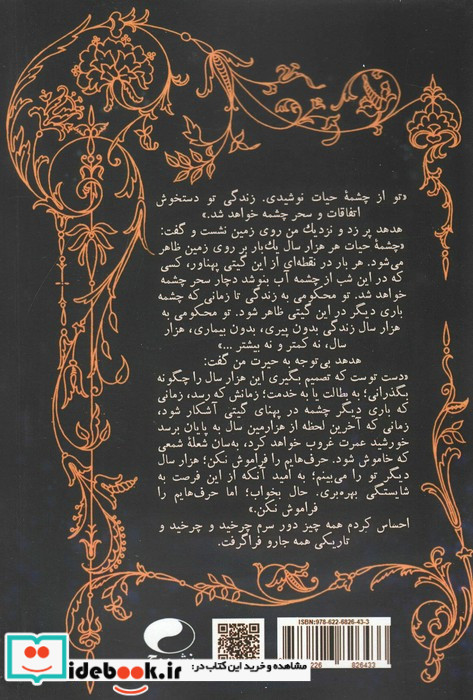 «تو از چشمهٔ حیات نوشیدی. زندگی تو دستخوش
اتفاقات و سحر چشمه خواهد شد.»
هدهد پر زد و نزدیك من روی زمین نشست و گفت:
«چشمهٔ حیات هر هزار سال یك‌بار بر روی زمین ظاهر
می‌شود. هر بار در نقطه‌ای از این گیتی پهناور، کسی
که در این شب از چشمه آب بنوشد دچار سحر چشمه
خواهد شد. تو محکومی به زندگی تا زمانی که چشمه
باری دیگر در این گیتی ظاهر شود. تو محکومی به
هزار سال زندگی بدون پیری، بدون بیماری، هزار
سال، نه کمتر و نه بیشتر ...»
هدهد بی‌توجه به حیرت من گفت:
«دست توست که تصمیم بگیری این هزار سال را چگونه
بگذرانی؛ به بطالت یا به خدمت؛ زمانش که رسد، زمانی
که باری دیگر چشمه در پهنای گیتی آشکار شود،
زمانی که آخرین لحظه از هزارمین سال به پایان برسد
خورشید عمرت غروب خواهد کرد، به‌سان شعلهٔ شمعی
که خاموش شود. حرف‌هایم را فراموش نکن؛ هزار سال
دیگر تو را می‌بینم؛ به امید آنکه از این فرصت به
شایستگی بهره‌بری. حال بخواب؛ اما حرف‌هایم را
فراموش نکن.»
احساس کردم همه چیز دور سرم چرخید و چرخید و
تاریکی همه جارو فراگرفت.
ISBN:978-622-6826-43-3
226 826433
مشاهده و خرید این کتاب در:
iidebook.ir